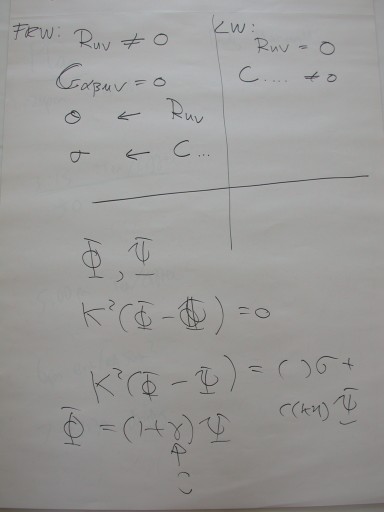 FRW: Rμν ≠ 0
Cαβμν = 0
θ ← Rμν
σ ← C...
LW:
Rμν = 0
C.... ≠ 0
Φ, Ψ
K²(Φ - Ψ) = 0
K²(Φ - Ψ) = ( )σ +
Ψ
Φ = (1+γ)Ψ
↑